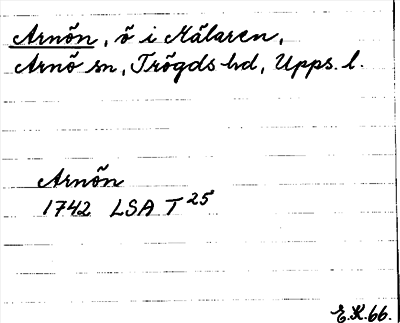 Arnön, ö i Mälaren,
Arnö sn, Trögds hd, Upps. l.
Arnön
1742 LSA T 25
E.K.66.